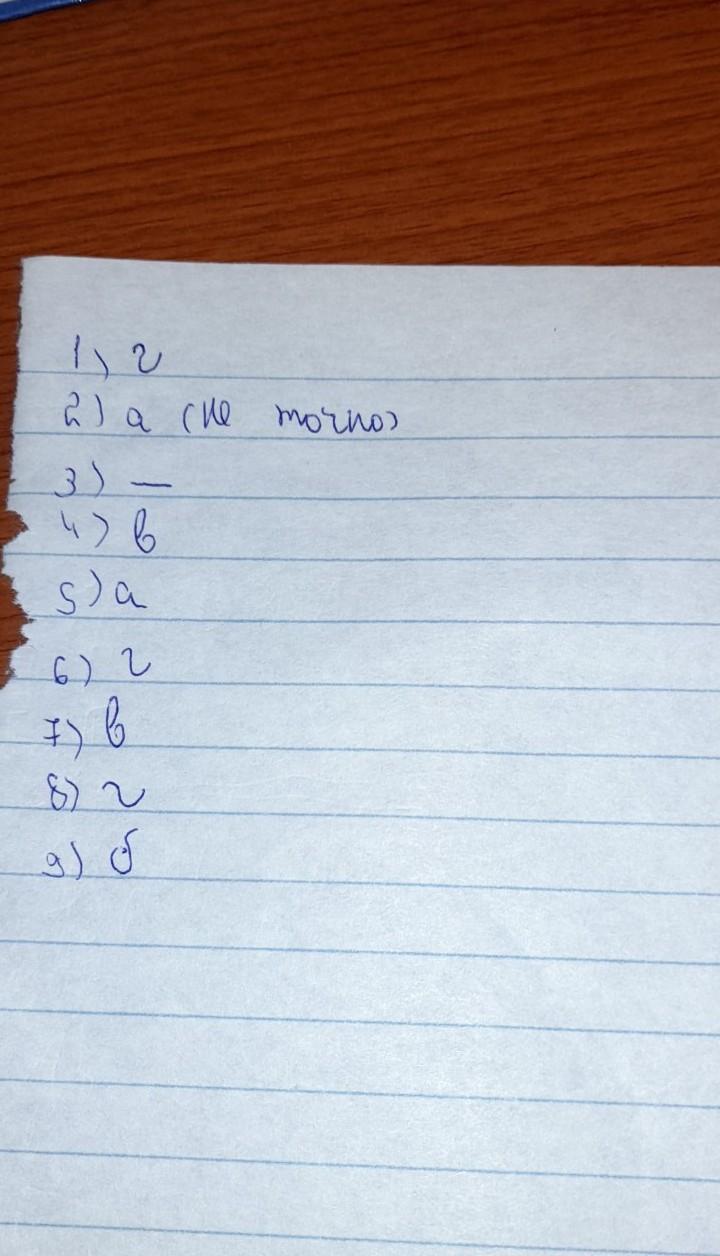 1) г
2) а (не точно)
3) —
4) в
5) а
6) г
7) в
8) г
9) б